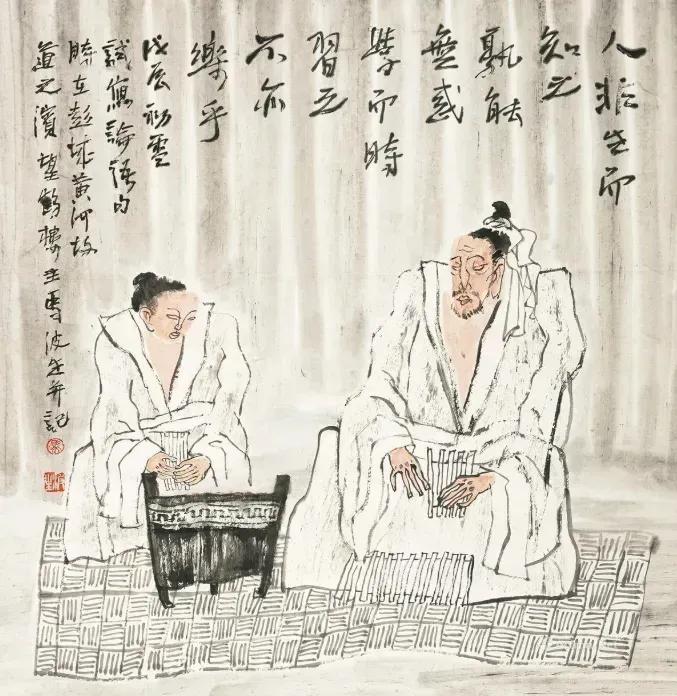 人非生而
知之
孰能
無惑
學而時
習之
不亦
樂乎
戊辰初雪
試寫論語句
時在彭城黃河故
道之濱望鶴樓主馬波生并記